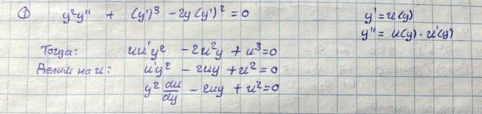 ① y²y'' + (y')³ - 2y(y')² = 0
y' = u(y)
y'' = u(y)·u'(y)
Тогда: uu'y² - 2u²y + u³ = 0
Делим на u: u'y² - 2uy + u² = 0
y² du/dy - 2uy + u² = 0